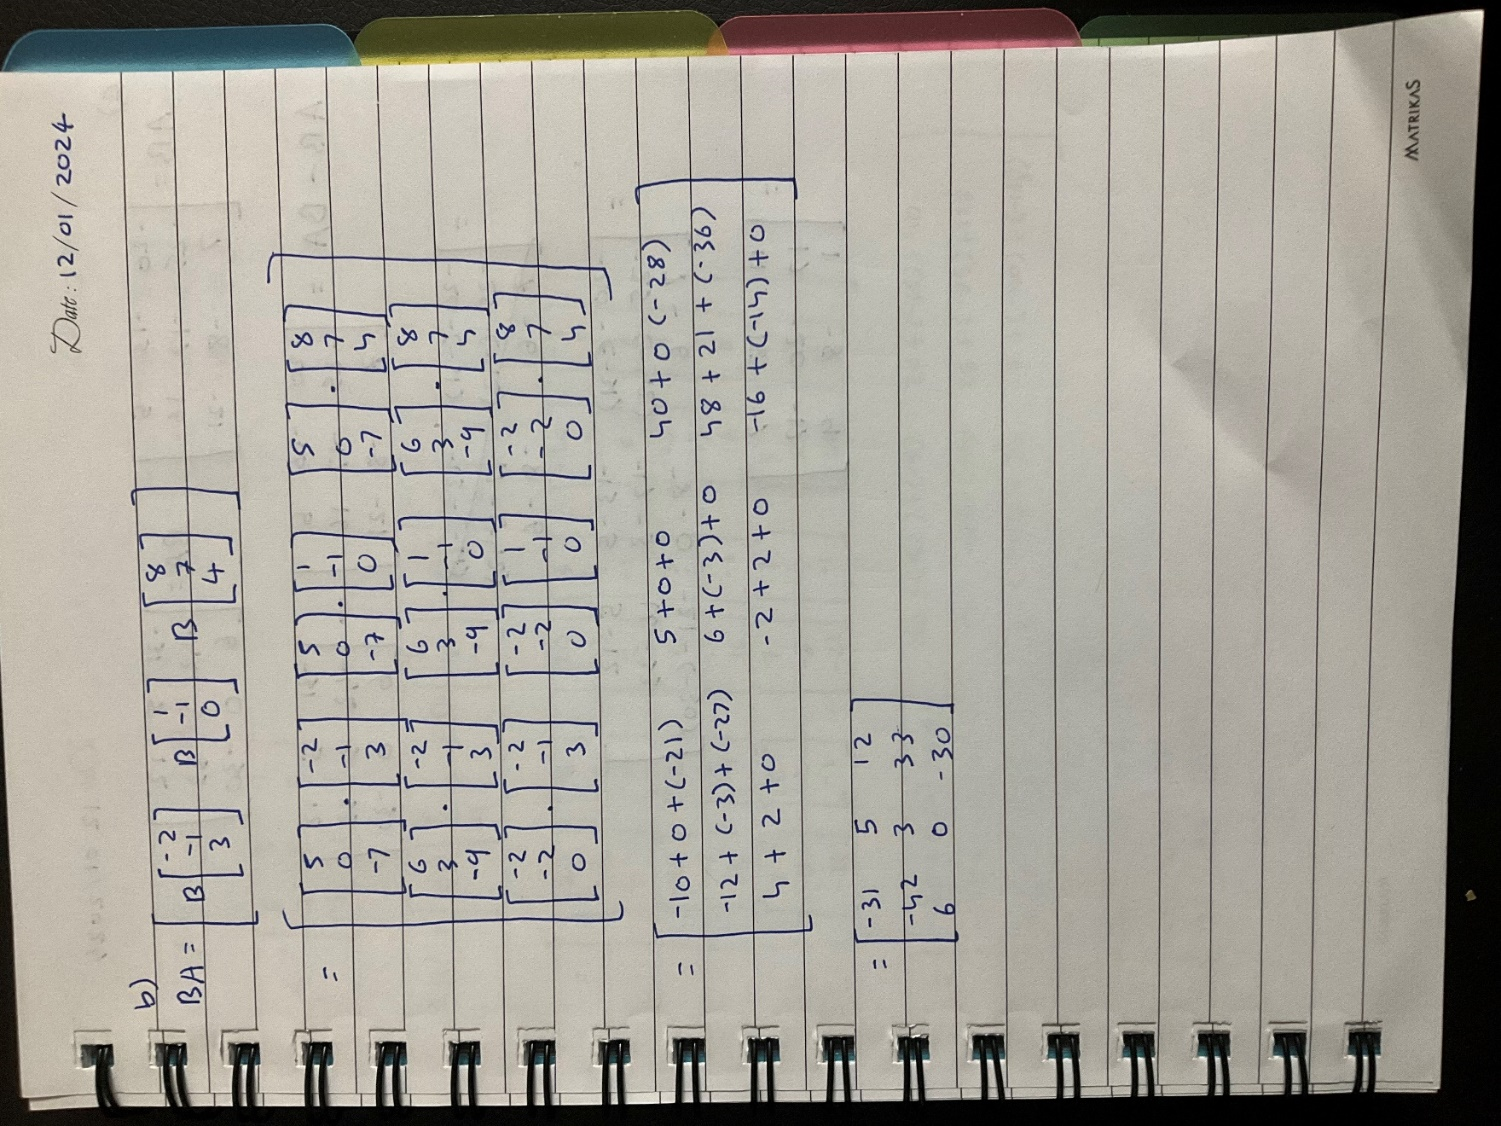 Date: 12/01/2024
b)
BA = [ B [-2 -1 3] B [1 -1 0] B [8 7 4] ]
= [ [5 0 -7] . [-2 -1 3] [5 0 -7] . [1 -1 0] [5 0 -7] . [8 7 4]
[6 3 -9] . [-2 -1 3] [6 3 -9] . [1 -1 0] [6 3 -9] . [8 7 4]
[-2 -2 0] . [-2 -1 3] [-2 -2 0] . [1 -1 0] [-2 -2 0] . [8 7 4] ]
= [ -10+0+(-21) 5+0+0 40+0(-28)
-12+(-3)+(-27) 6+(-3)+0 48+21+(-36)
4+2+0 -2+2+0 -16+(-14)+0 ]
= [ -31 5 12
-42 3 33
6 0 -30 ]
MATRIKAS